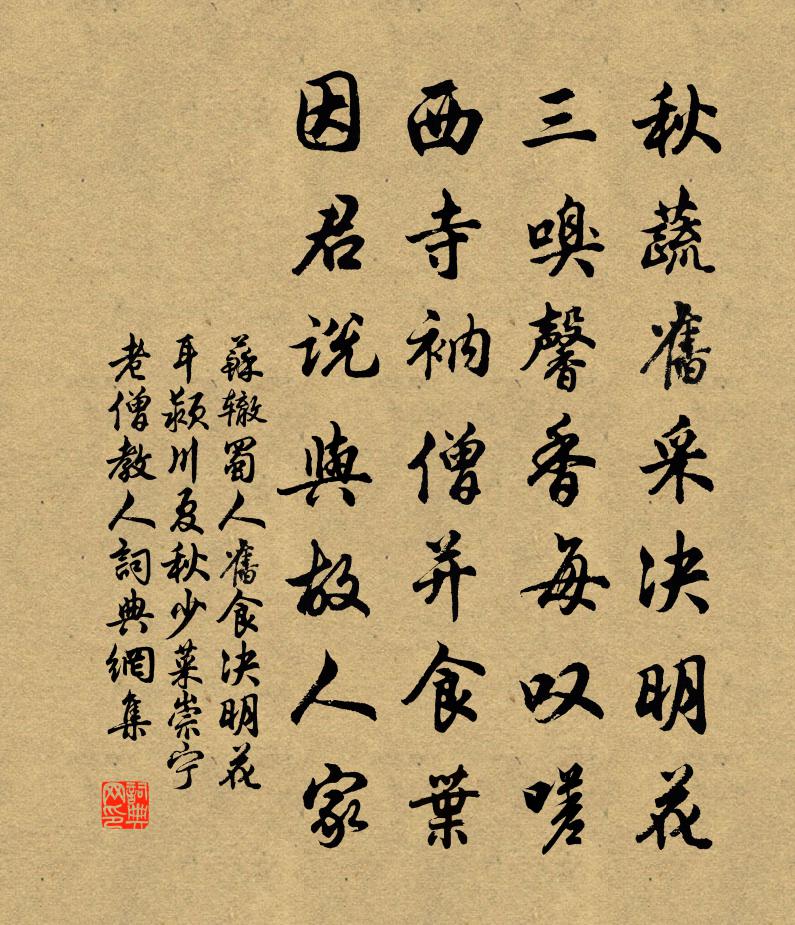 秋蔬舊采决明花
三嗅馨香每叹嗟
西寺衲僧并食葉
因君说與故人家
蘇辙蜀人舊食决明花
耳颍川夏秋少菜崇宁
老僧教人詞典網集
詞典网印